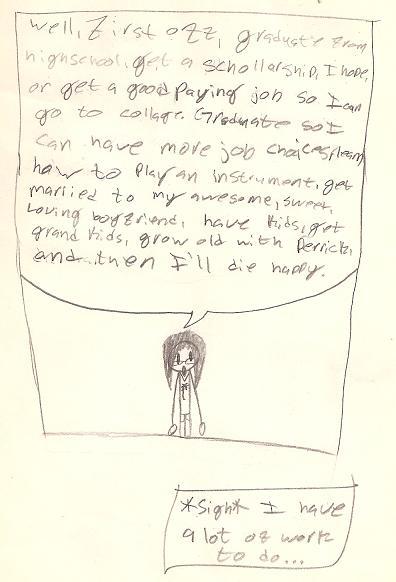 well, first off, graduate from
highschool, get a schollarship, I hope,
or get a good paying job so I can
go to collage. Graduate so I
can have more job choices, learn
how to play an instrument, get
married to my awesome, sweet,
loving boyfriend, have kids, get
grand kids, grow old with Derrick,
and...then I'll die happy.
*sigh* I have
a lot of work
to do...